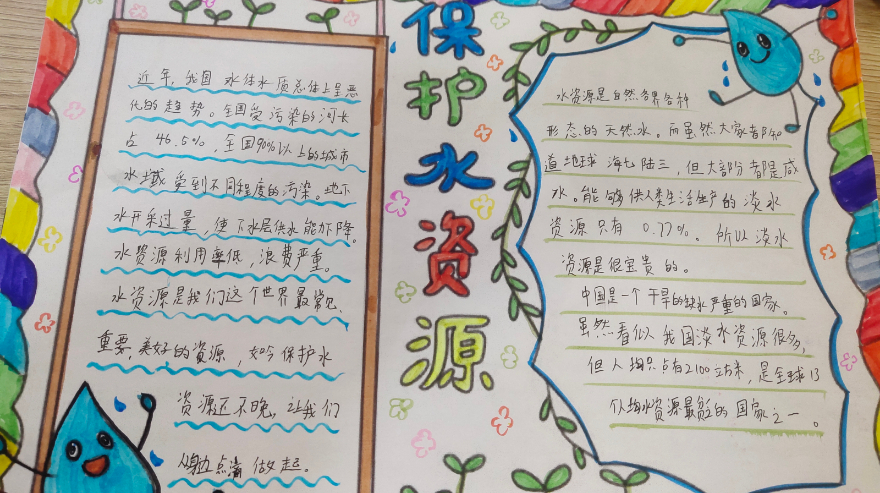 保护水资源
近年,我国水体水质总体上呈恶
化的趋势。全国受污染的河长
占46.5%,全国90%以上的城市
水域受到不同程度的污染。地下
水开采过量,使下水层供水能力下降。
水资源利用率低,浪费严重。
水资源是我们这个世界最常见、
重要,美好的资源,如今保护水
资源还不晚,让我们
从身边点滴做起。
水资源是自然各界各种
形态的天然水。而虽然大家都知
道地球海七陆三,但大部分都是咸
水。能够供人类生活生产的淡水
资源只有0.77%。所以淡水
资源是很宝贵的。
中国是一个干旱的缺水严重的国家。
虽然看似我国淡水资源很多,
但人均只占有2100立方米,是全球13
个人均水资源最贫乏的国家之一。